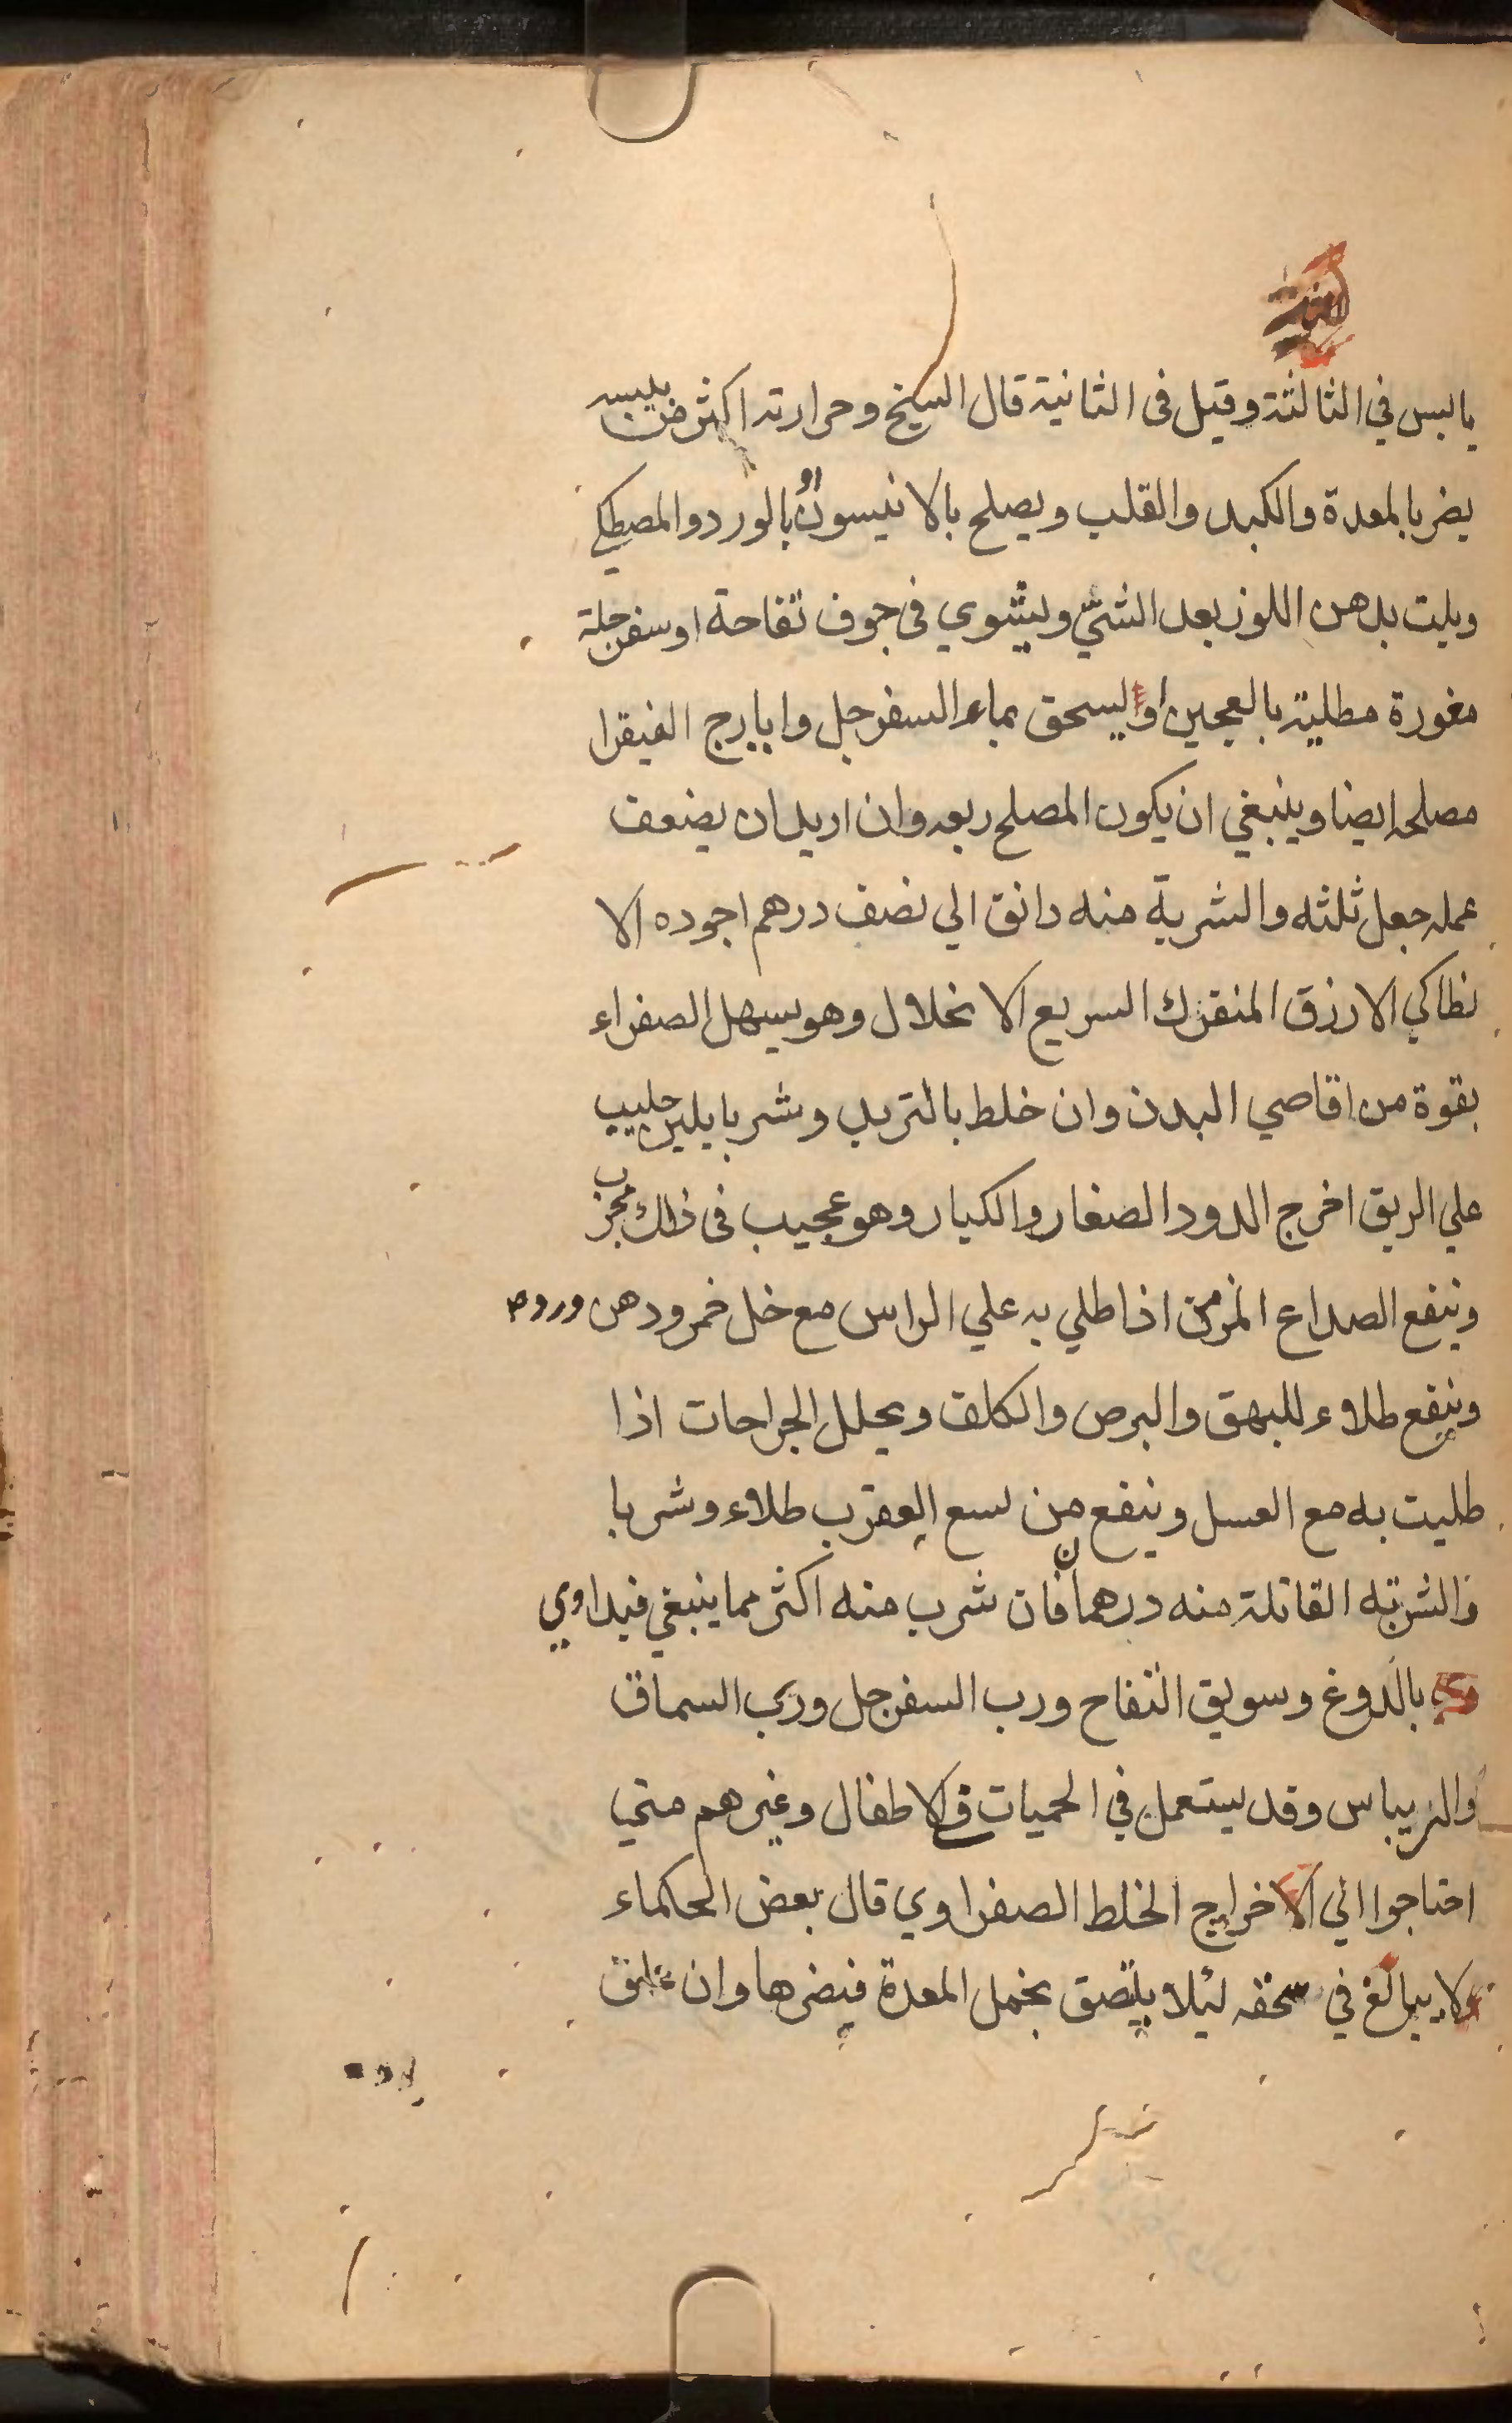 يابس في الثالثة وقيل في الثانية قال الشيخ وحرارته اكثر من يبسه
يضر بالمعدة والكبد والقلب ويصلح بالانيسون او بالورد والمصطكي
ويلت بدهن اللوز بعد الشيّ ويشوي في جوف تفاحة او سفرجلة
مغورة مطلية بالعجين او يسحق بماء السفرجل وايارج الفيقرا
مصلحه ايضا وينبغي ان يكون المصلح ربعه وان اريد ان يضعف
عمله جعل ثلثه والشربة منه دانق الي نصف درهم اجوده الا
نطاكي الازرق المنفرك السريع الانحلال وهو يسهل الصفراء
بقوة من اقاصي البدن وان خلط بالتربد وشربا بلبن حليب
علي الريق اخرج الدود الصغار والكبار وهو عجيب في ذلك مجرب
وينفع الصداع المزمن اذا طلي به علي الراس مع خل خمر ودهن ورد
وينفع طلاء للبهق والبرص والكلف ويحلل الجراحات اذا
طليت به مع العسل وينفع من لسع العقرب طلاء وشربا
والشربة القاتلة منه درهمان فان شرب منه اكثر مما ينبغي فيداوي
بالدوغ وسويق التفاح ورب السفرجل ورب السماق
والريباس وقد يستعمل في الحميات في الاطفال وغيرهم متي
احتاجوا الي اخراج الخلط الصفراوي قال بعض الحكماء
ولا يبالغ في سحقه ليلا يلتصق بخمل المعدة فيضرها وان